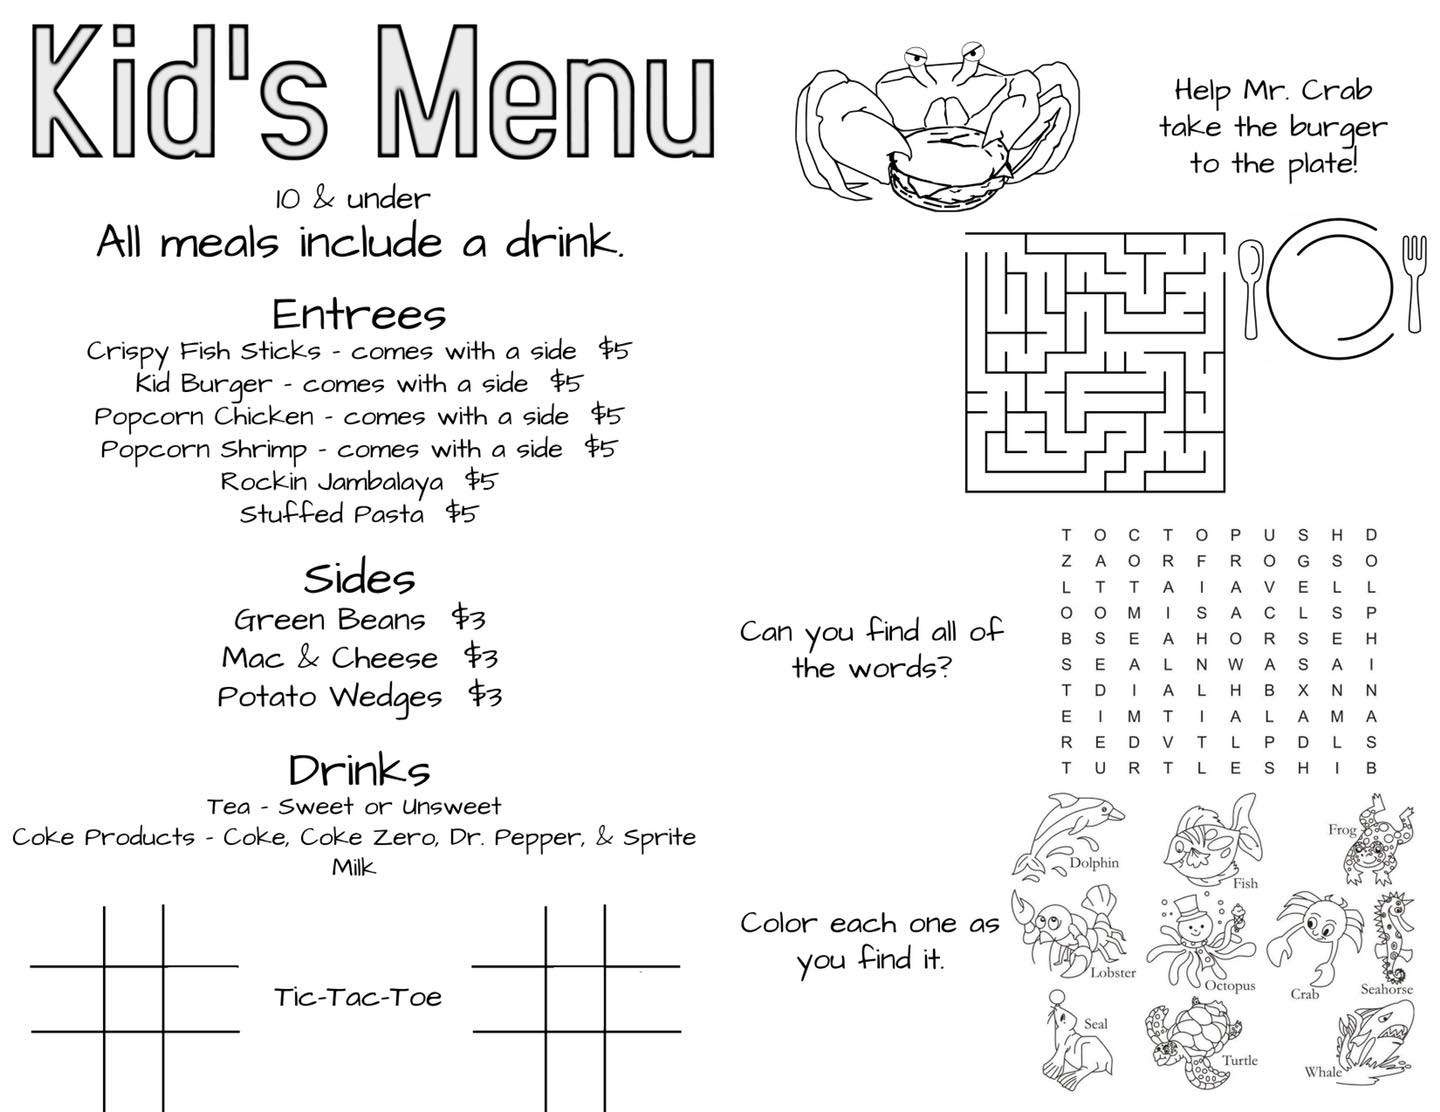 Kid's Menu
10 & under
All meals include a drink.
Entrees
Crispy Fish Sticks - comes with a side $5
Kid Burger - comes with a side $5
Popcorn Chicken - comes with a side $5
Popcorn Shrimp - comes with a side $5
Rockin Jambalaya $5
Stuffed Pasta $5
Sides
Green Beans $3
Mac & Cheese $3
Potato Wedges $3
Drinks
Tea - Sweet or Unsweet
Coke Products - Coke, Coke Zero, Dr. Pepper, & Sprite
Milk
Tic-Tac-Toe
Help Mr. Crab
take the burger
to the plate!
Can you find all of
the words?
T O C T O P U S H D
Z A O R F R O G S O
L T T A I A V E L L
O O M I S A C L S P
B S E A H O R S E H
S E A L N W A S A I
T D I A L H B X N N
E I M T I A L A M A
R E D V T L P D L S
T U R T L E S H I B
Color each one as
you find it.
Dolphin
Fish
Frog
Lobster
Octopus
Crab
Seahorse
Seal
Turtle
Whale